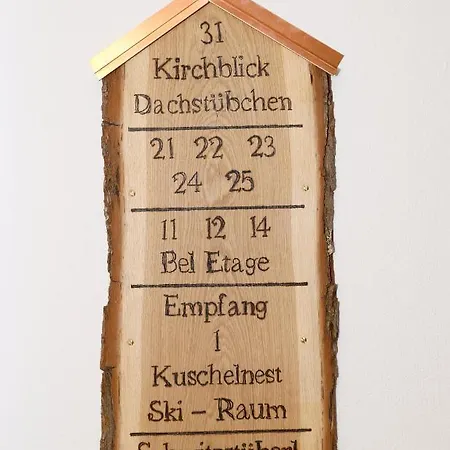 31
Kirchblick
Dachstübchen
21 22 23
24 25
11 12 14
Bel Etage
Empfang
1
Kuschelnest
Ski – Raum